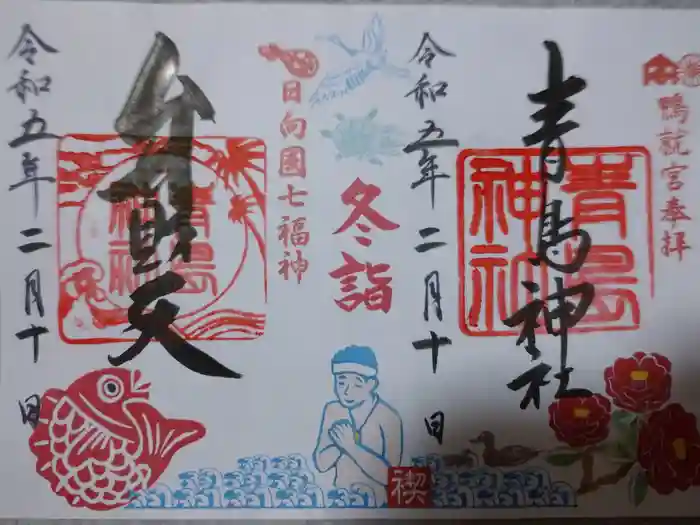 鴨就宮奉拝
青島神社
青島
神社
令和五年二月十日
冬詣
日向國七福神
弁財天
青島
神社
令和五年二月十日
禊